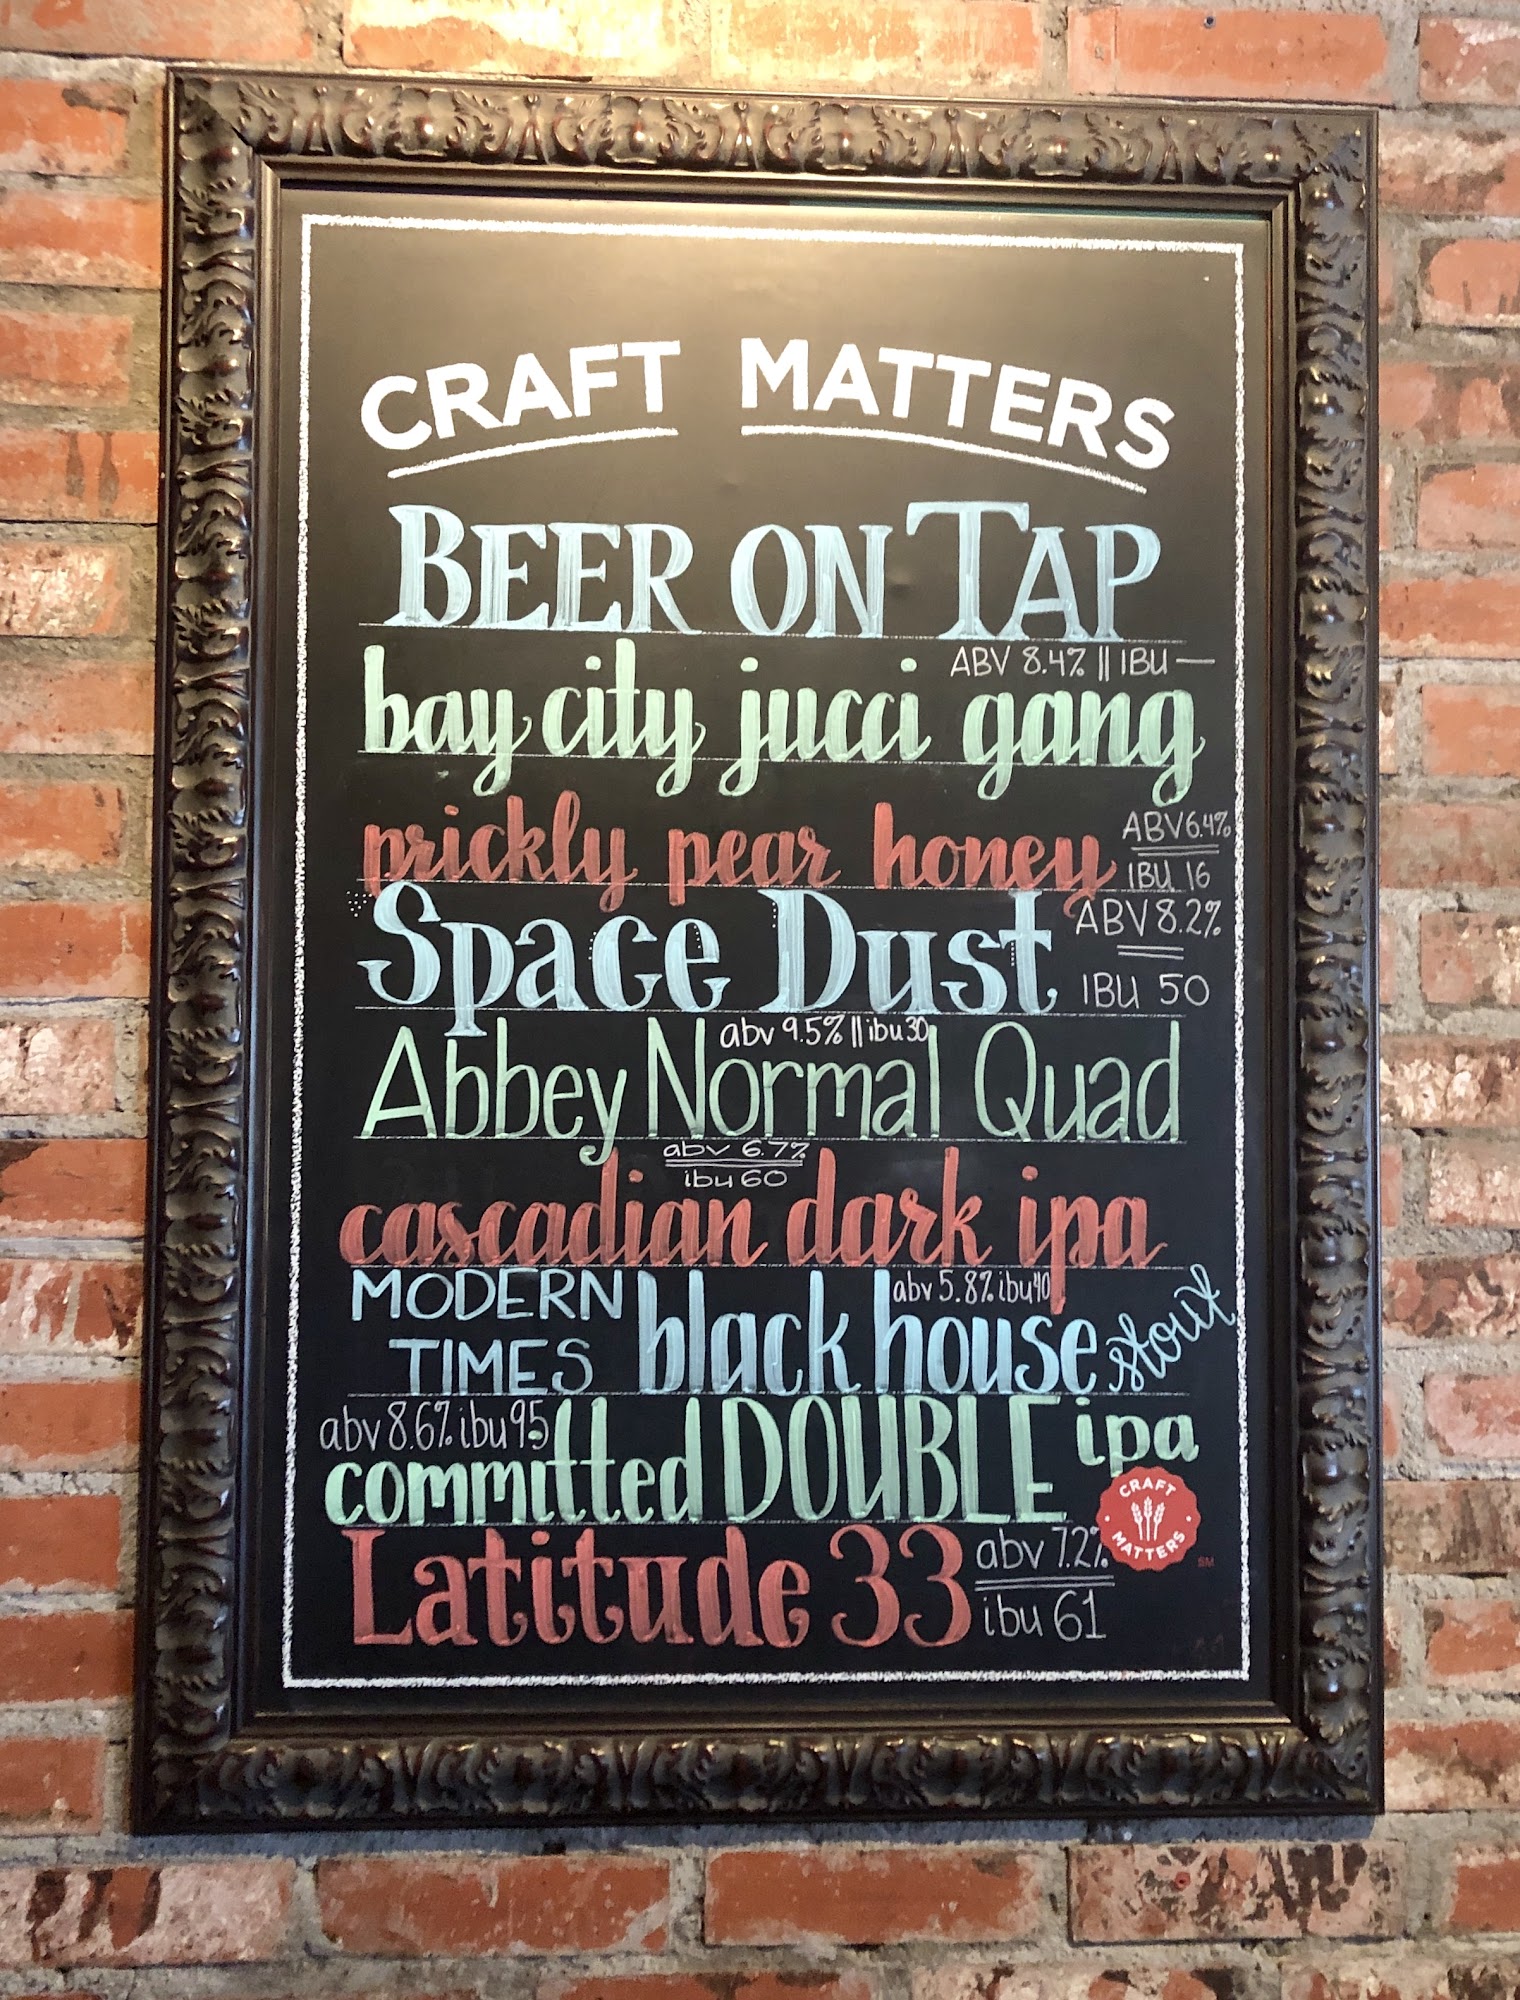 CRAFT MATTERS
BEER ON TAP
ABV 8.4% || IBU —
bay city jucci gang
prickly pear honey
ABV 6.4%
IBU 16
Space Dust
ABV 8.2%
IBU 50
abv 9.5% || ibu 30
Abbey Normal Quad
abv 6.7%
ibu 60
cascadian dark ipa
MODERN
TIMES
black house
abv 5.8% ibu 40
stout
abv 8.6% ibu 95
committed DOUBLE ipa
CRAFT
MATTERS
SM
Latitude 33
abv 7.2%
ibu 61